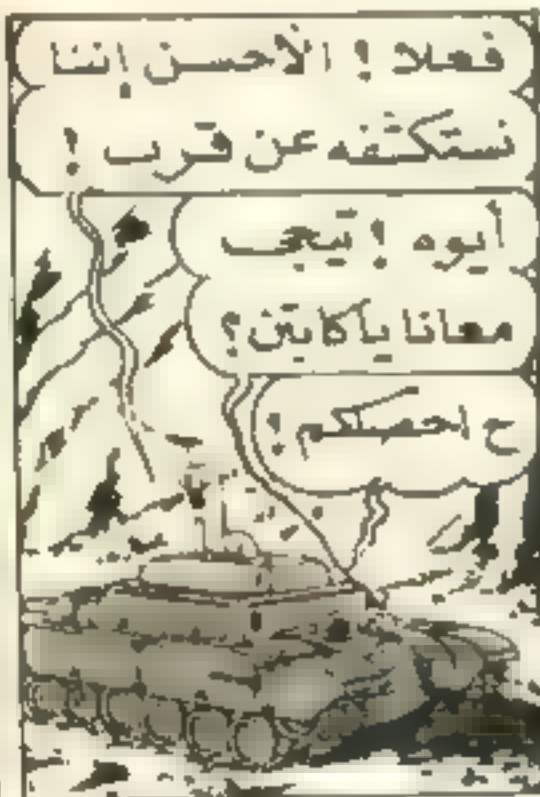 فعلا ! الأحسن إننا
نستكشفه عن قرب !
أيوه ! تيجى
معانا يا كابتن ؟
ح احصلكم !